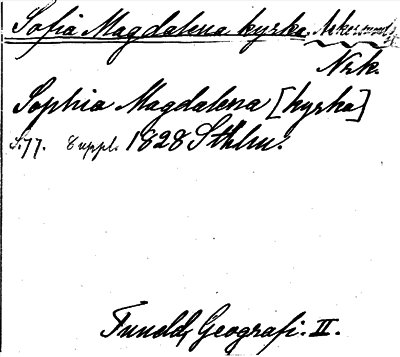 Sofia Magdalena kyrka
Nrk.
Sophia Magdalena [kyrka]
s. 77. 8 uppl. 1828 Sthlm.
Tuneld, Geografi. II.